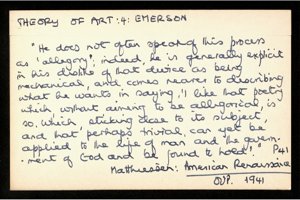 THEORY OF ART: 4: EMERSON
"He does not often speak of this process
as 'allegory'; indeed, he is generally explicit
in his dislike of that device as being
mechanical, and comes nearer to describing
what he wants in saying, 'I like that poetry
which without aiming to be allegorical, is
so. Which, sticking close to its subject,
and that perhaps trivial, can yet be
applied to the life of man and the govern-
-ment of God and be found to hold'." P41
Matthiessen: American Renaissance
OUP. 1941